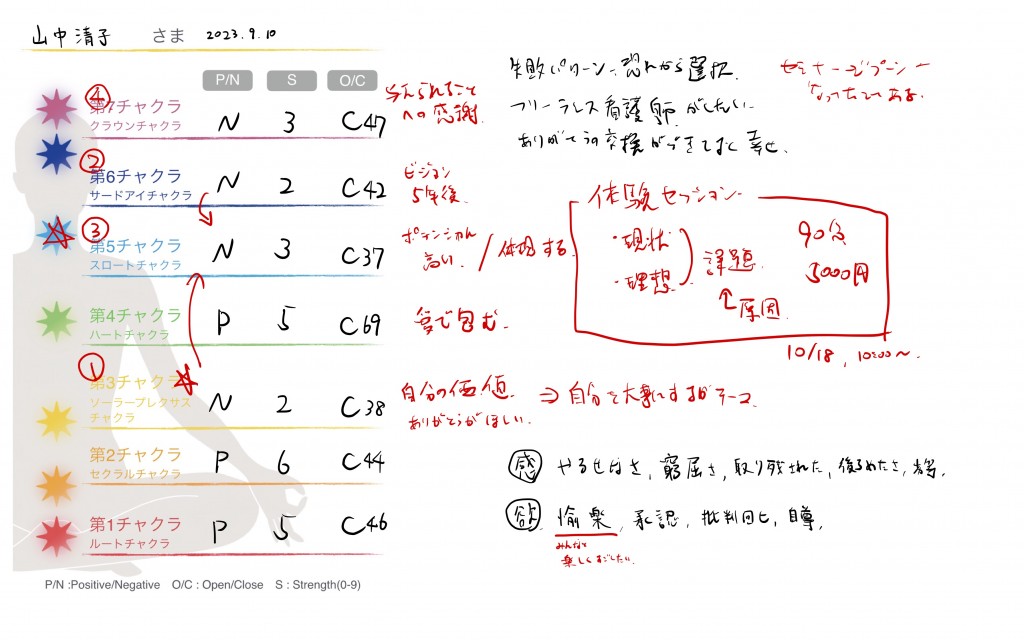 山中 清子 さま 2023.9.10
P/N S O/C
④ 第7チャクラ
クラウンチャクラ N 3 C47 与えられたこと
への感謝
② 第6チャクラ
サードアイチャクラ N 2 C42 ビジョン
5年後
③ 第5チャクラ
スロートチャクラ N 3 C37 ポテンシャル
高い / 体現する
第4チャクラ
ハートチャクラ P 5 C69 愛で包む
① 第3チャクラ
ソーラープレクサス
チャクラ N 2 C38 自分の価値
ありがとうがほしい
⇒ 自分を大事にするがテーマ
第2チャクラ
セクラルチャクラ P 6 C44
第1チャクラ
ルートチャクラ P 5 C46
失敗パターン、恐れから選択
フリーランス看護師がしたい
ありがとうの交換ができてなく 幸せ
体験セッション
・現状
・理想
課題
↑原因
90分
5000円
10/18, 10:00〜
感 やるせなさ, 窮屈さ, 取り残された, 後ろめたさ,
欲 愉楽, 承認, 批判回ヒ, 自尊,
みんなと
楽しくすごしたい
P/N :Positive/Negative O/C : Open/Close S : Strength(0-9)